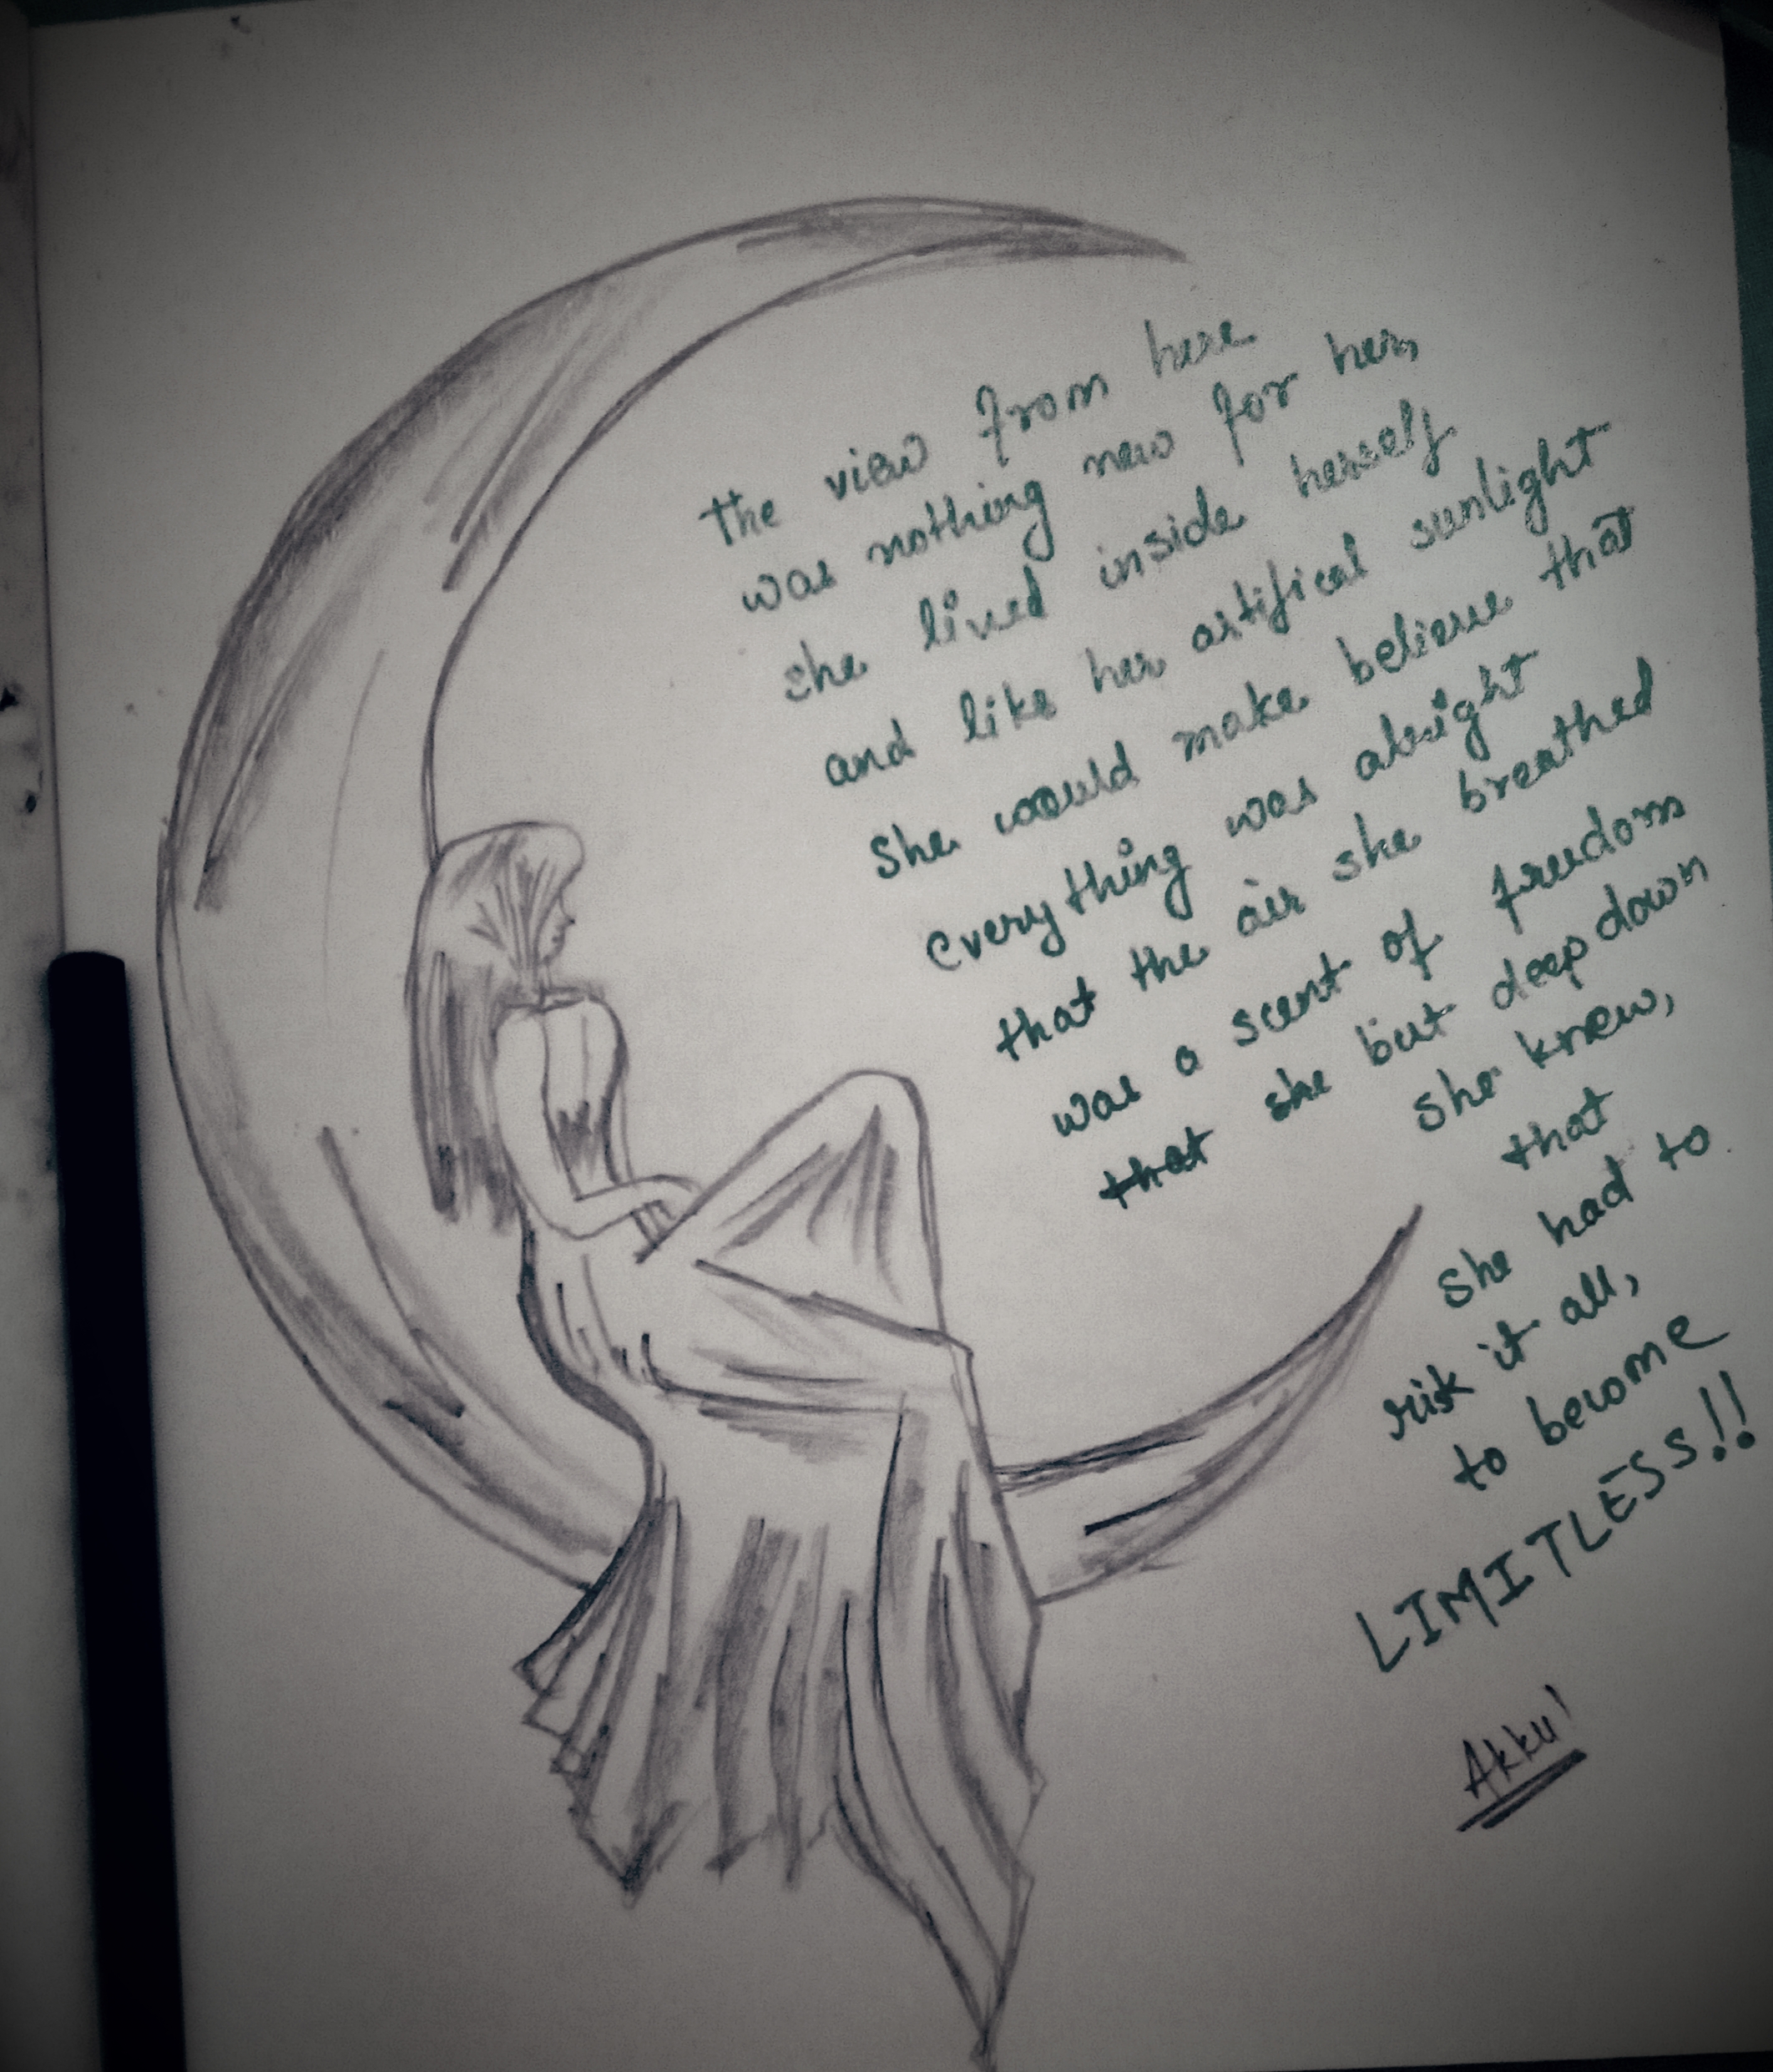 The view from here
was nothing new for her,
she lived inside herself
and like her artifical sunlight
She would make believe that
everything was alright
that the air she breathed
was a scent of freedom
that she but deep down
she knew,
that
She had to
risk it all,
to become
LIMITLESS!!
Akku!